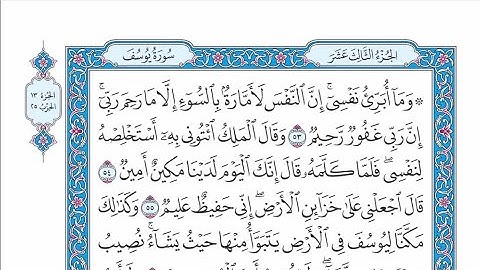 سُورَةُ يُوسُفَ
الجُزءُ الثَّالِثَ عَشَرَ
الجزء ١٣
الحزب ٢٥
۞ وَمَآ أُبَرِّئُ نَفۡسِيٓۚ إِنَّ ٱلنَّفۡسَ لَأَمَّارَةُۢ بِٱلسُّوٓءِ إِلَّا مَا رَحِمَ رَبِّيٓۚ
إِنَّ رَبِّي غَفُورٞ رَّحِيمٞ ٥٣ وَقَالَ ٱلۡمَلِكُ ٱئۡتُونِي بِهِۦٓ أَسۡتَخۡلِصۡهُ
لِنَفۡسِيۖ فَلَمَّا كَلَّمَهُۥ قَالَ إِنَّكَ ٱلۡيَوۡمَ لَدَيۡنَا مَكِينٌ أَمِينٞ ٥٤
قَالَ ٱجۡعَلۡنِي عَلَىٰ خَزَآئِنِ ٱلۡأَرۡضِۖ إِنِّي حَفِيظٌ عَلِيمٞ ٥٥ وَكَذَٰلِكَ
مَكَّنَّا لِيُوسُفَ فِي ٱلۡأَرۡضِ يَتَبَوَّأُ مِنۡهَا حَيۡثُ يَشَآءُۚ نُصِيبُ